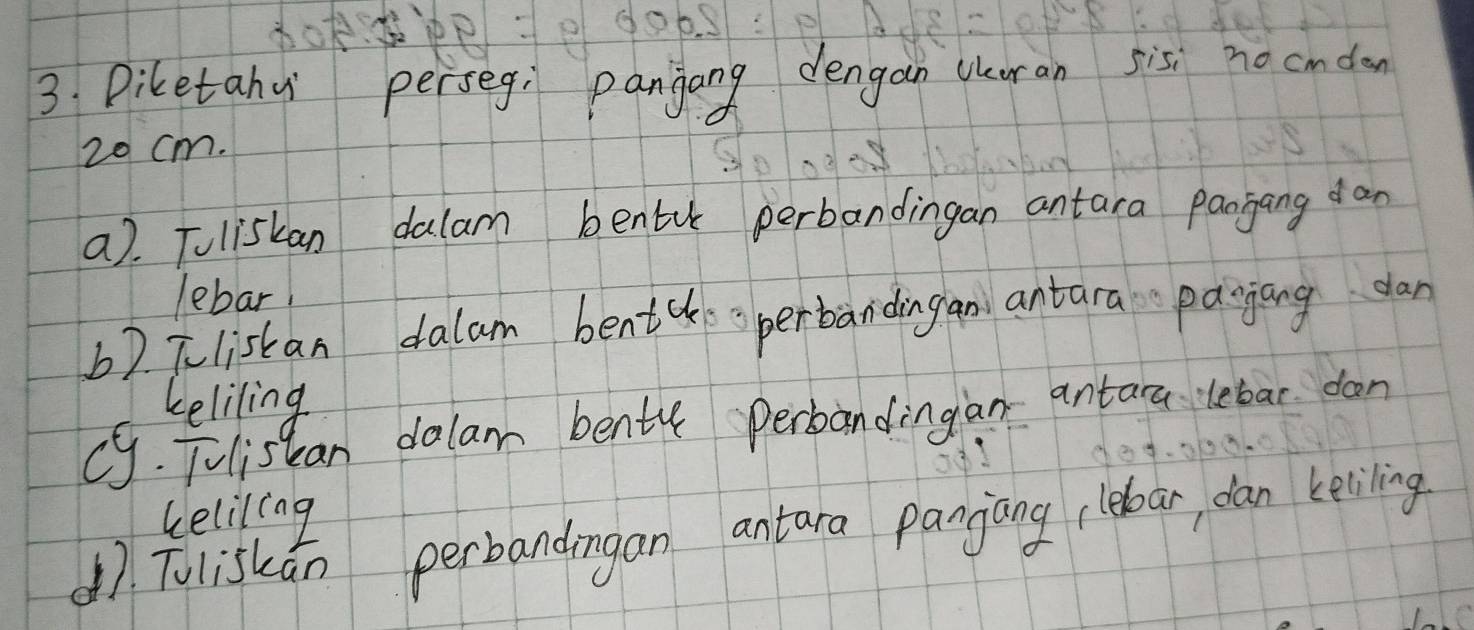 3. Diketahui persegi panjang dengan ukuran sisi 40 cm dan
20 cm.
a). Tuliskan dalam bentuk perbandingan antara panjang dan
lebar.
b). Tuliskan dalam bentuk perbandingan antara panjang dan
keliling
c). Tuliskan dalam bentuk perbandingan antara lebar dan
keliling
d). Tuliskan perbandingan antara panjang, lebar, dan keliling.